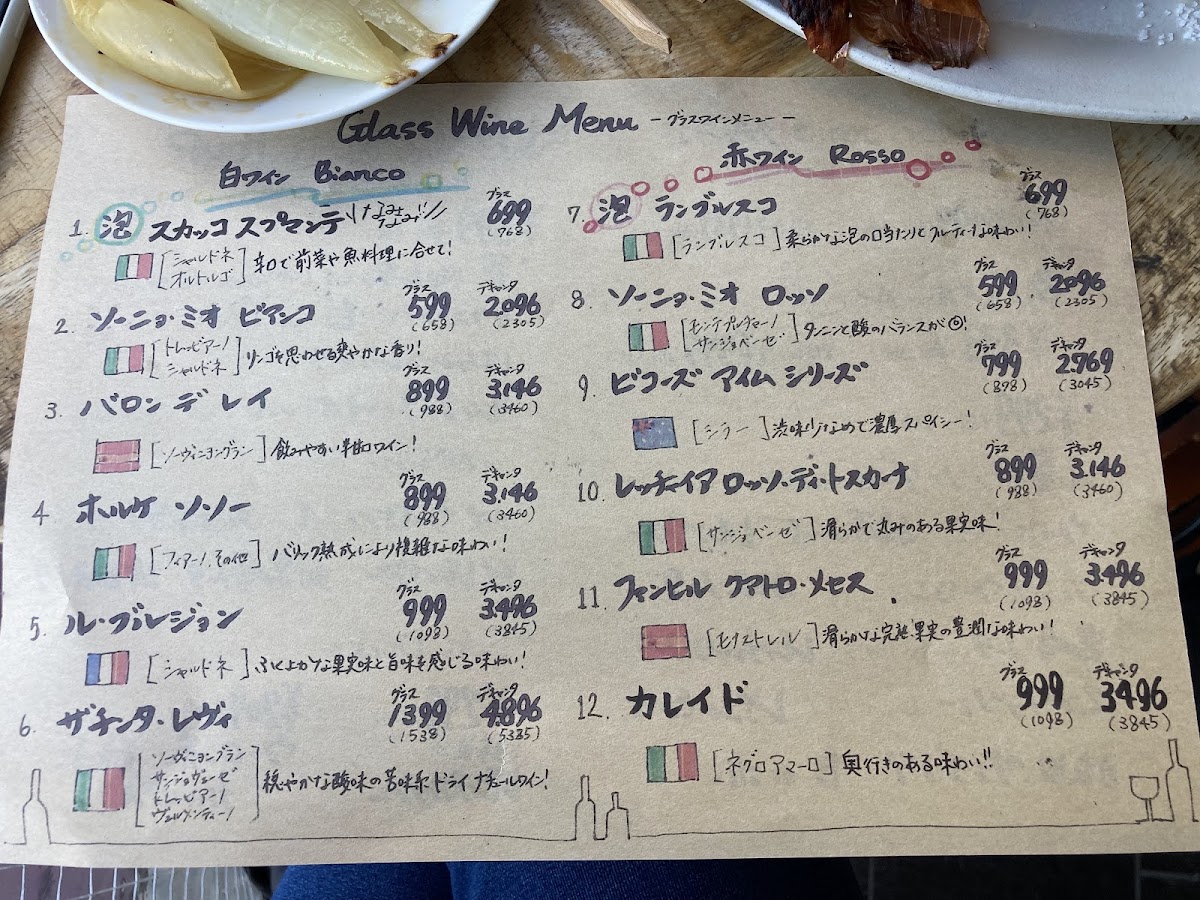 Glass Wine Menu -グラスワインメニュー-
白ワイン Bianco
1. 泡 スカッコ スプマンテ
グラス
699
(768)
[シャルドネ
オルトルゴ] 辛口で前菜や魚料理に合せて!
2. ソーニョ・ミオ ビアンコ
グラス デキャンタ
599 2.096
(658) (2305)
[トレッビアーノ
シャルドネ] リンゴを思わせる爽やかな香り!
3. バロン デ レイ
グラス デキャンタ
899 3.146
(988) (3460)
[ソーヴィニヨングラン] 飲みやすい半甘口ワイン!
4 ホルケ ソ・ソー
グラス デキャンタ
899 3.146
(988) (3460)
[フィアーノ.その他] バリック熟成により複雑な味わい!
5. ル・ブルレジョン
グラス デキャンタ
999 3.496
(1098) (3845)
[シャルドネ] ふくよかな果実味と旨味を感じる味わい!
6. ザチンタ・レヴィ
グラス デキャンタ
1399 4.896
(1538) (5385)
[ソーヴィニョングラン
サンジョヴェーゼ
トレッビアーノ
ヴェルメンティーノ] 穏やかな酸味の苦味系ドライナチュールワイン!
赤ワイン Rosso
7. 泡 ランブルスコ
グラス
699
(768)
[ランブルスコ] 柔らかな泡の口当たりとフルーティーな味わい!
8. ソーニョ・ミオ ロッソ
グラス デキャンタ
599 2.096
(658) (2305)
[モンテプルチャーノ
サンジョベーゼ] タンニンと酸のバランスが◎!
9. ビコーズ アイム シリーズ
グラス デキャンタ
799 2.769
(878) (3045)
[シラー] 渋味少なめで濃厚スパイシー!
10. レッチャイア ロッソ・ディ・トスカーナ
グラス デキャンタ
899 3.146
(988) (3460)
[サンジョベーゼ] 滑らかで丸みのある果実味!
11. ファンヒル クアトロ・メセス
グラス デキャンタ
999 3.496
(1098) (3845)
[モナストレル] 滑らかな完熟果実の豊潤な味わい!
12. カレイド
グラス デキャンタ
999 3.496
(1098) (3845)
[ネグロアマーロ] 奥行きのある味わい!!